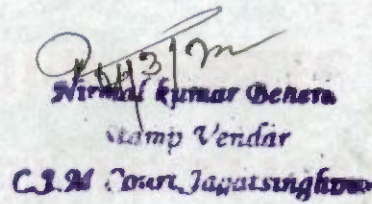 Nirmal kumar Behera
Stamp Vendar
C.J.M Court, Jagatsinghpur